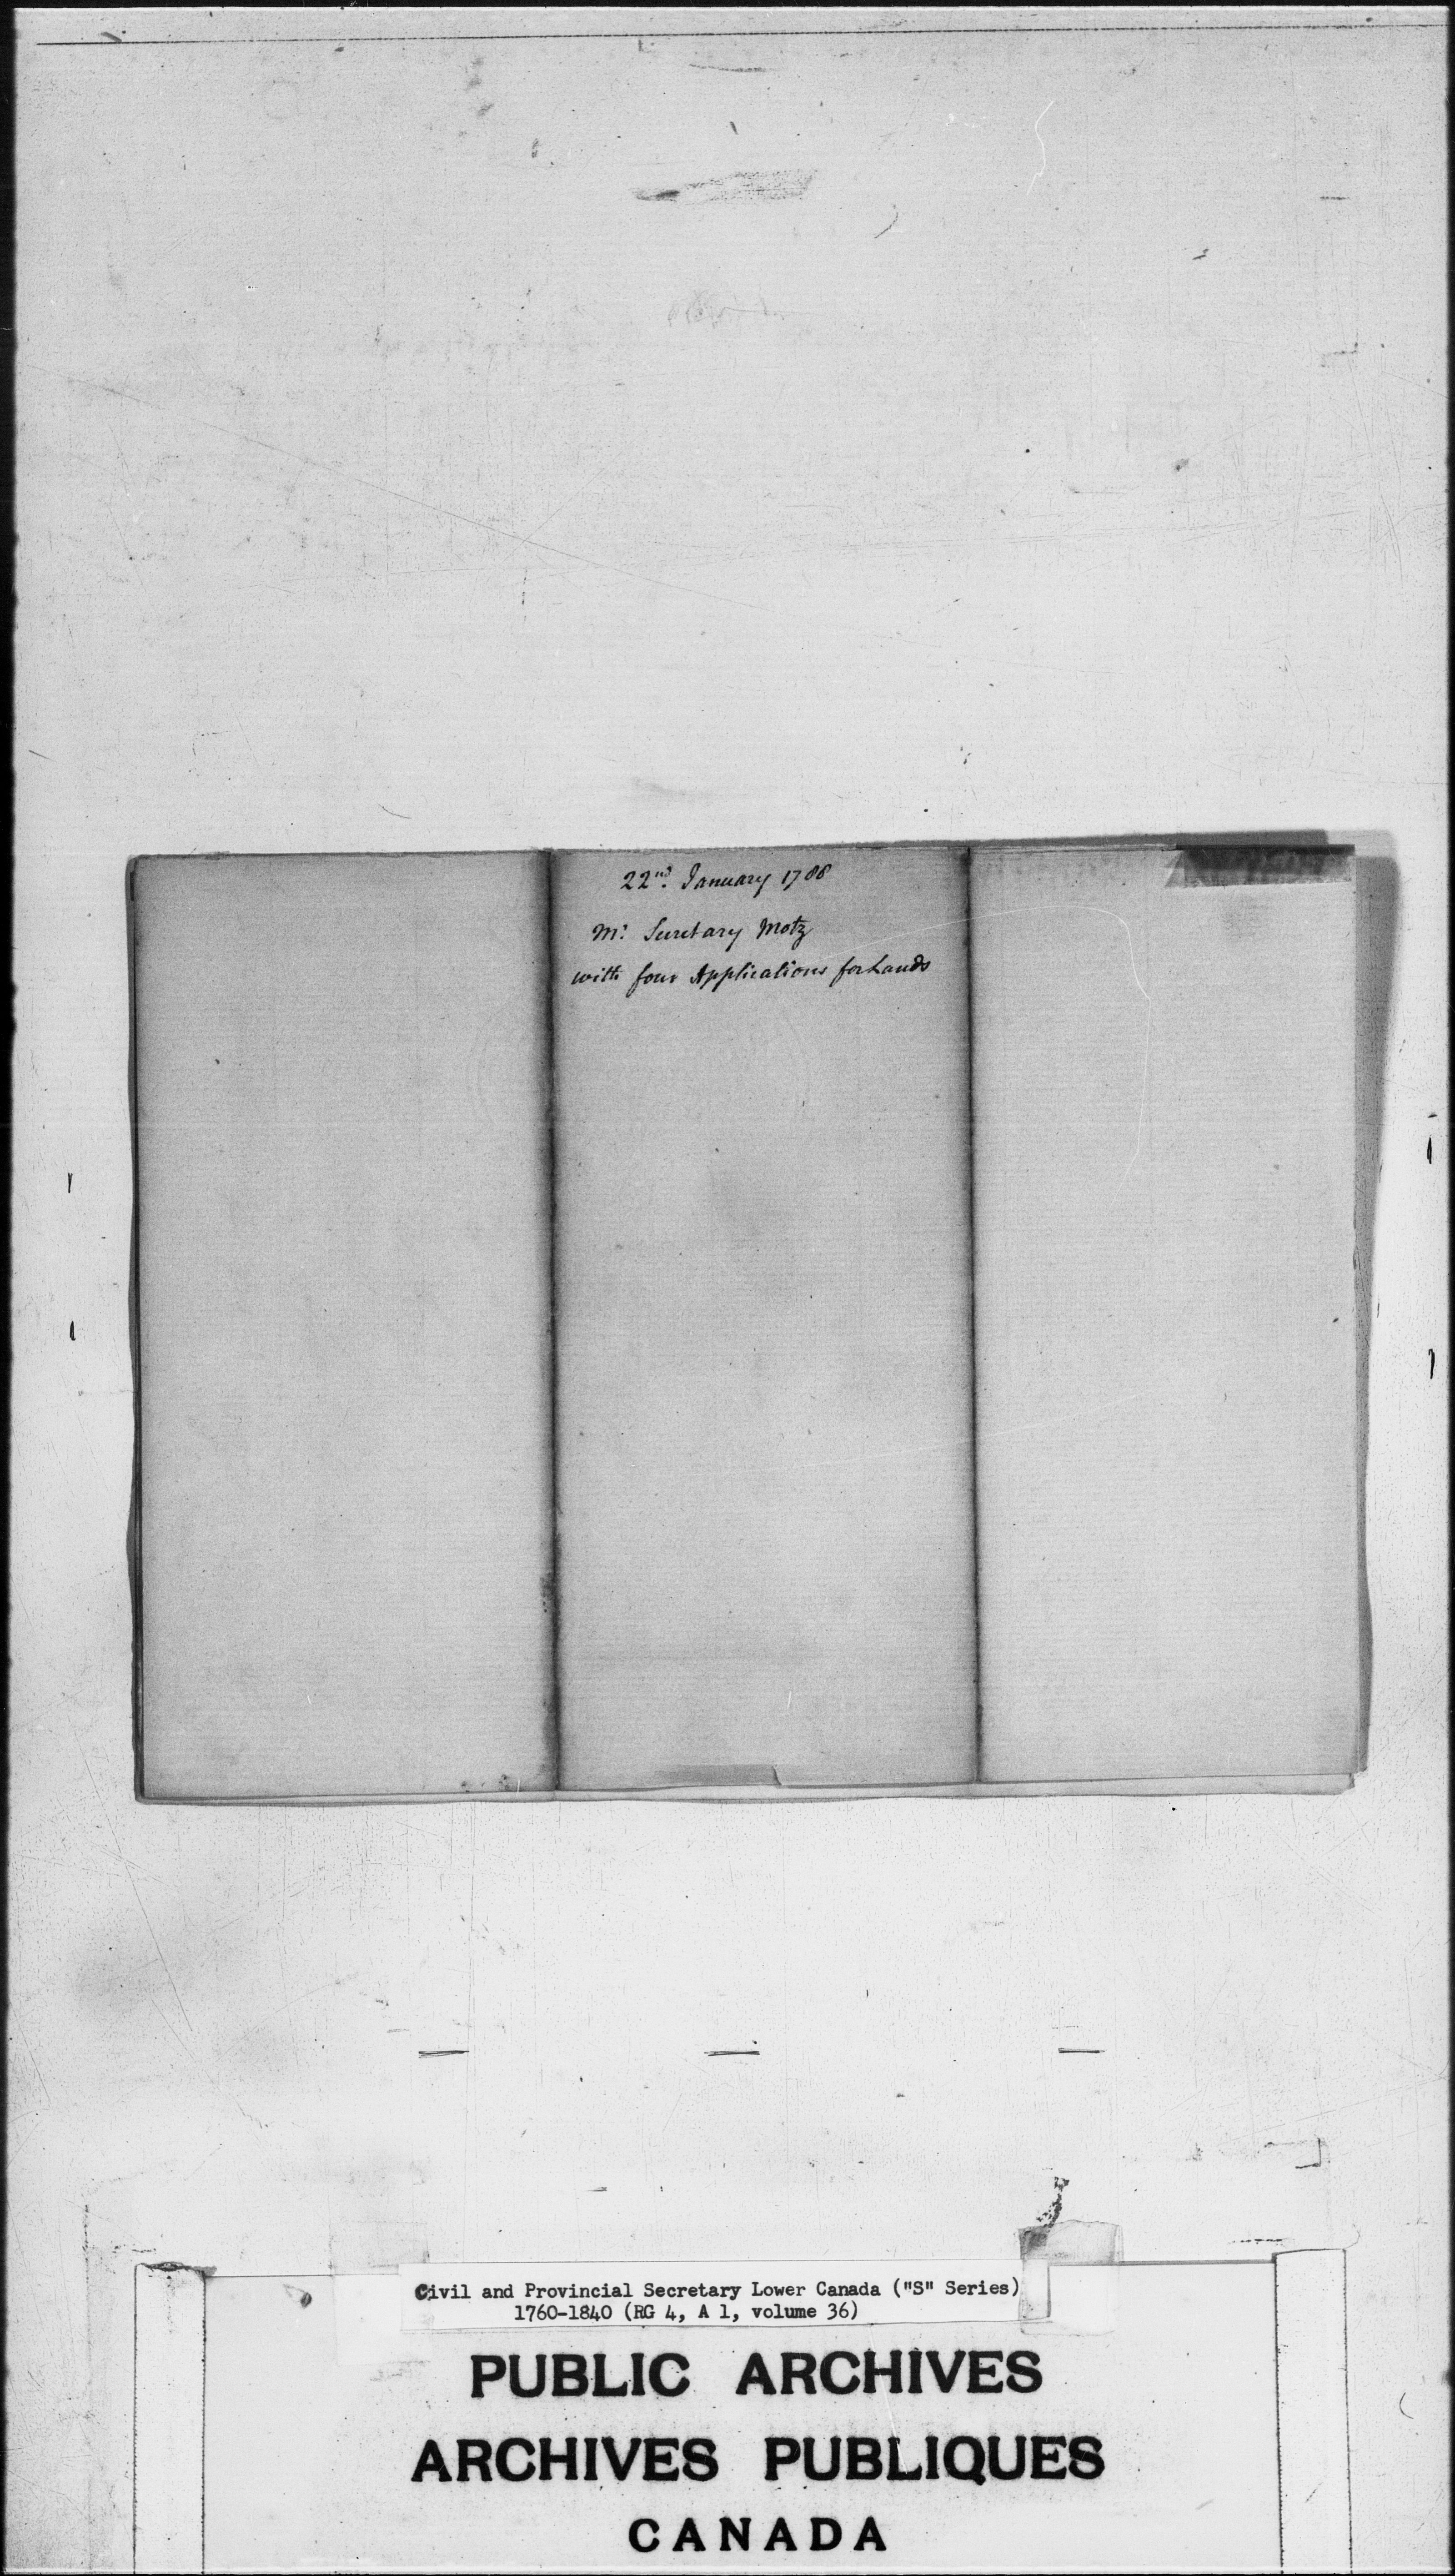 22nd. January 1788
Mr. Secretary Motz
with four Applications for Lands
Civil and Provincial Secretary Lower Canada ("S" Series)
1760-1840 (RG 4, A 1, volume 36)
PUBLIC ARCHIVES
ARCHIVES PUBLIQUES
CANADA